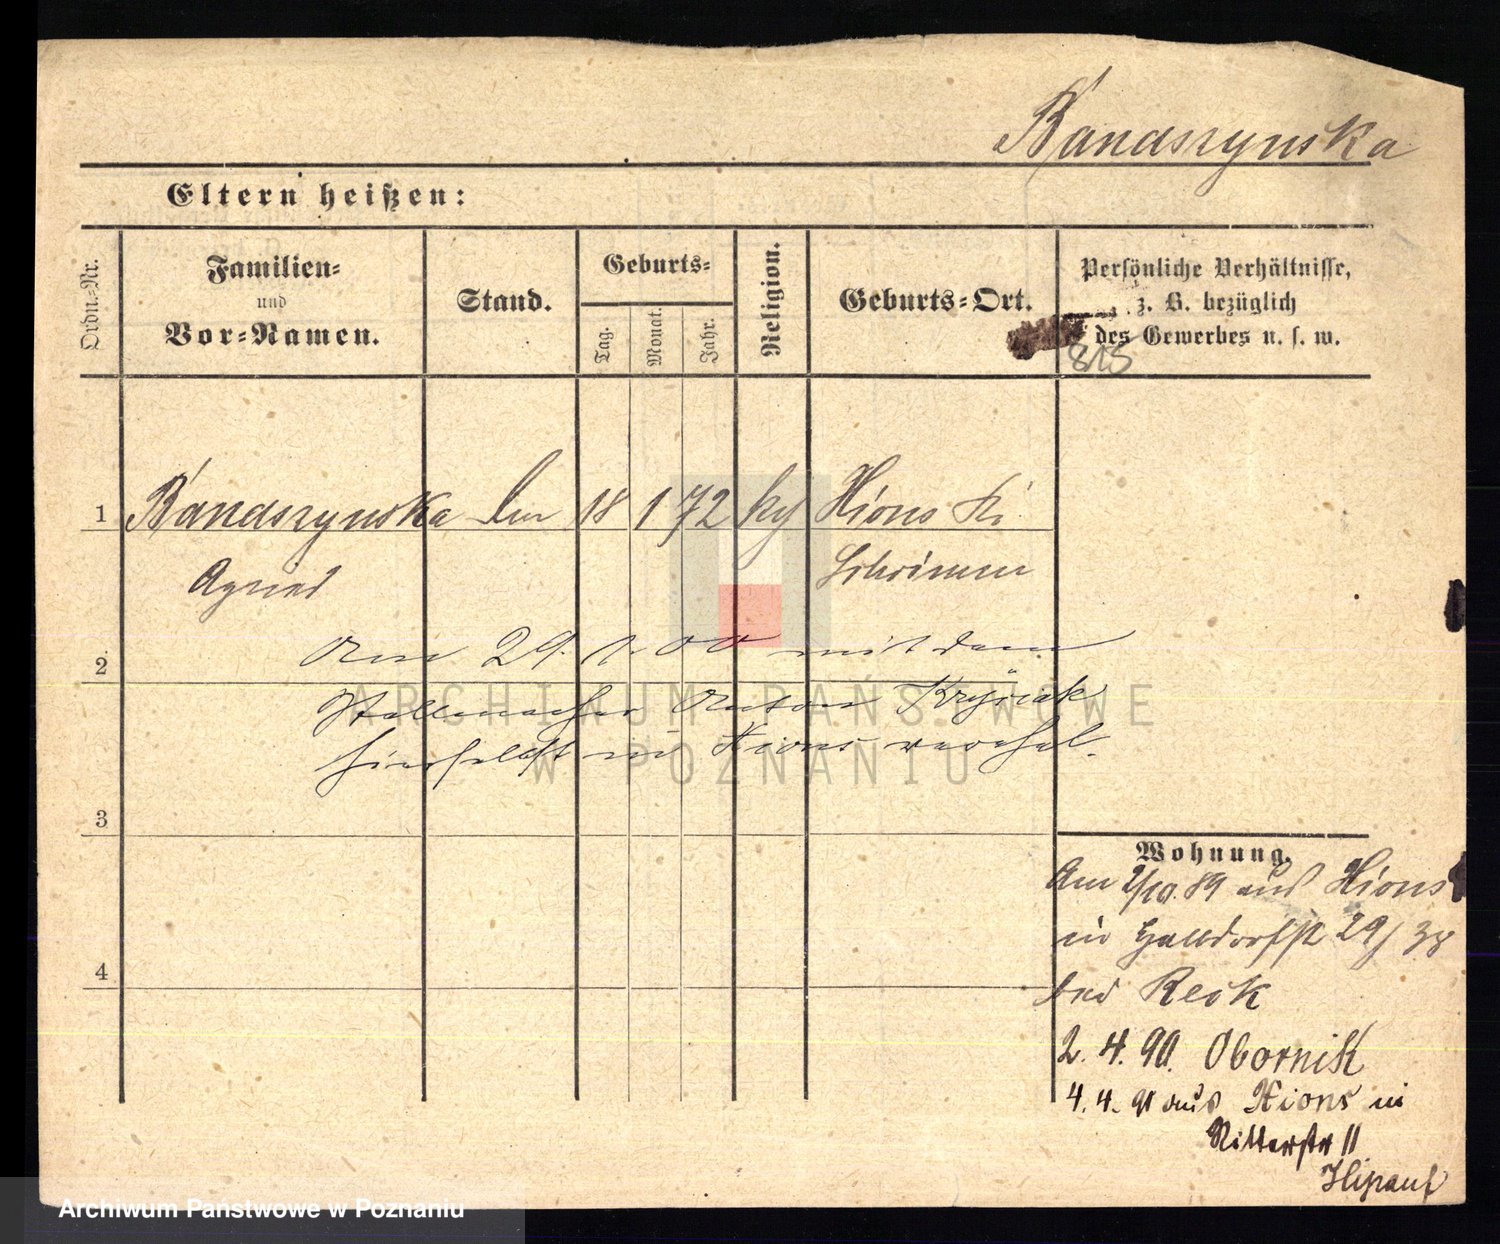 Bandszynska
Eltern heißen:
Ordn.-Nr.
Familien-
und
Vor-Namen.
Stand.
Geburts-
Tag.
Monat.
Jahr.
Religion.
Geburts-Ort.
Persönliche Verhältnisse,
z. B. bezüglich
des Gewerbes u. s. w.
815
1 Bandszynska 18 1 72 Xions Kr
Schrimm
Am 29. 1. 00 mit dem
2
Stellmacher Anton
in Xions verehel.
3
Wohnung.
Am 2/10. 89 aus Xions
in Halbdorfstr 29/38
bei
4
2. 4. 90. Obornik
4. 4. 91 aus Xions in
Ritterstr 11
ARCHIWUM PAŃSTWOWE
W POZNANIU
Archiwum Państwowe w Poznaniu